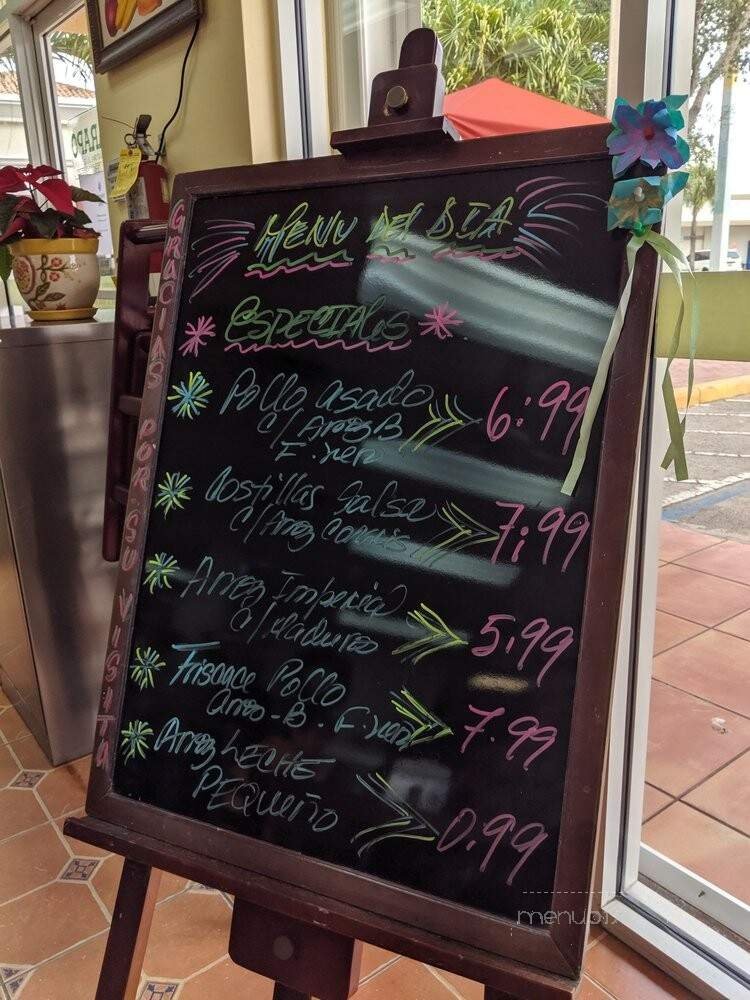 MENU DEL DIA
ESPECIALES
Pollo asado
C/Arroz B
F. negro
6.99
Costillas Salsa
C/Arroz Congris
7.99
Arroz Imperial
C/Maduros
5.99
Fricace Pollo
Arroz-B. F. negro
7.99
Arroz LECHE
PEQUEÑO
0.99
GRACIAS POR SU VISITA
menupix